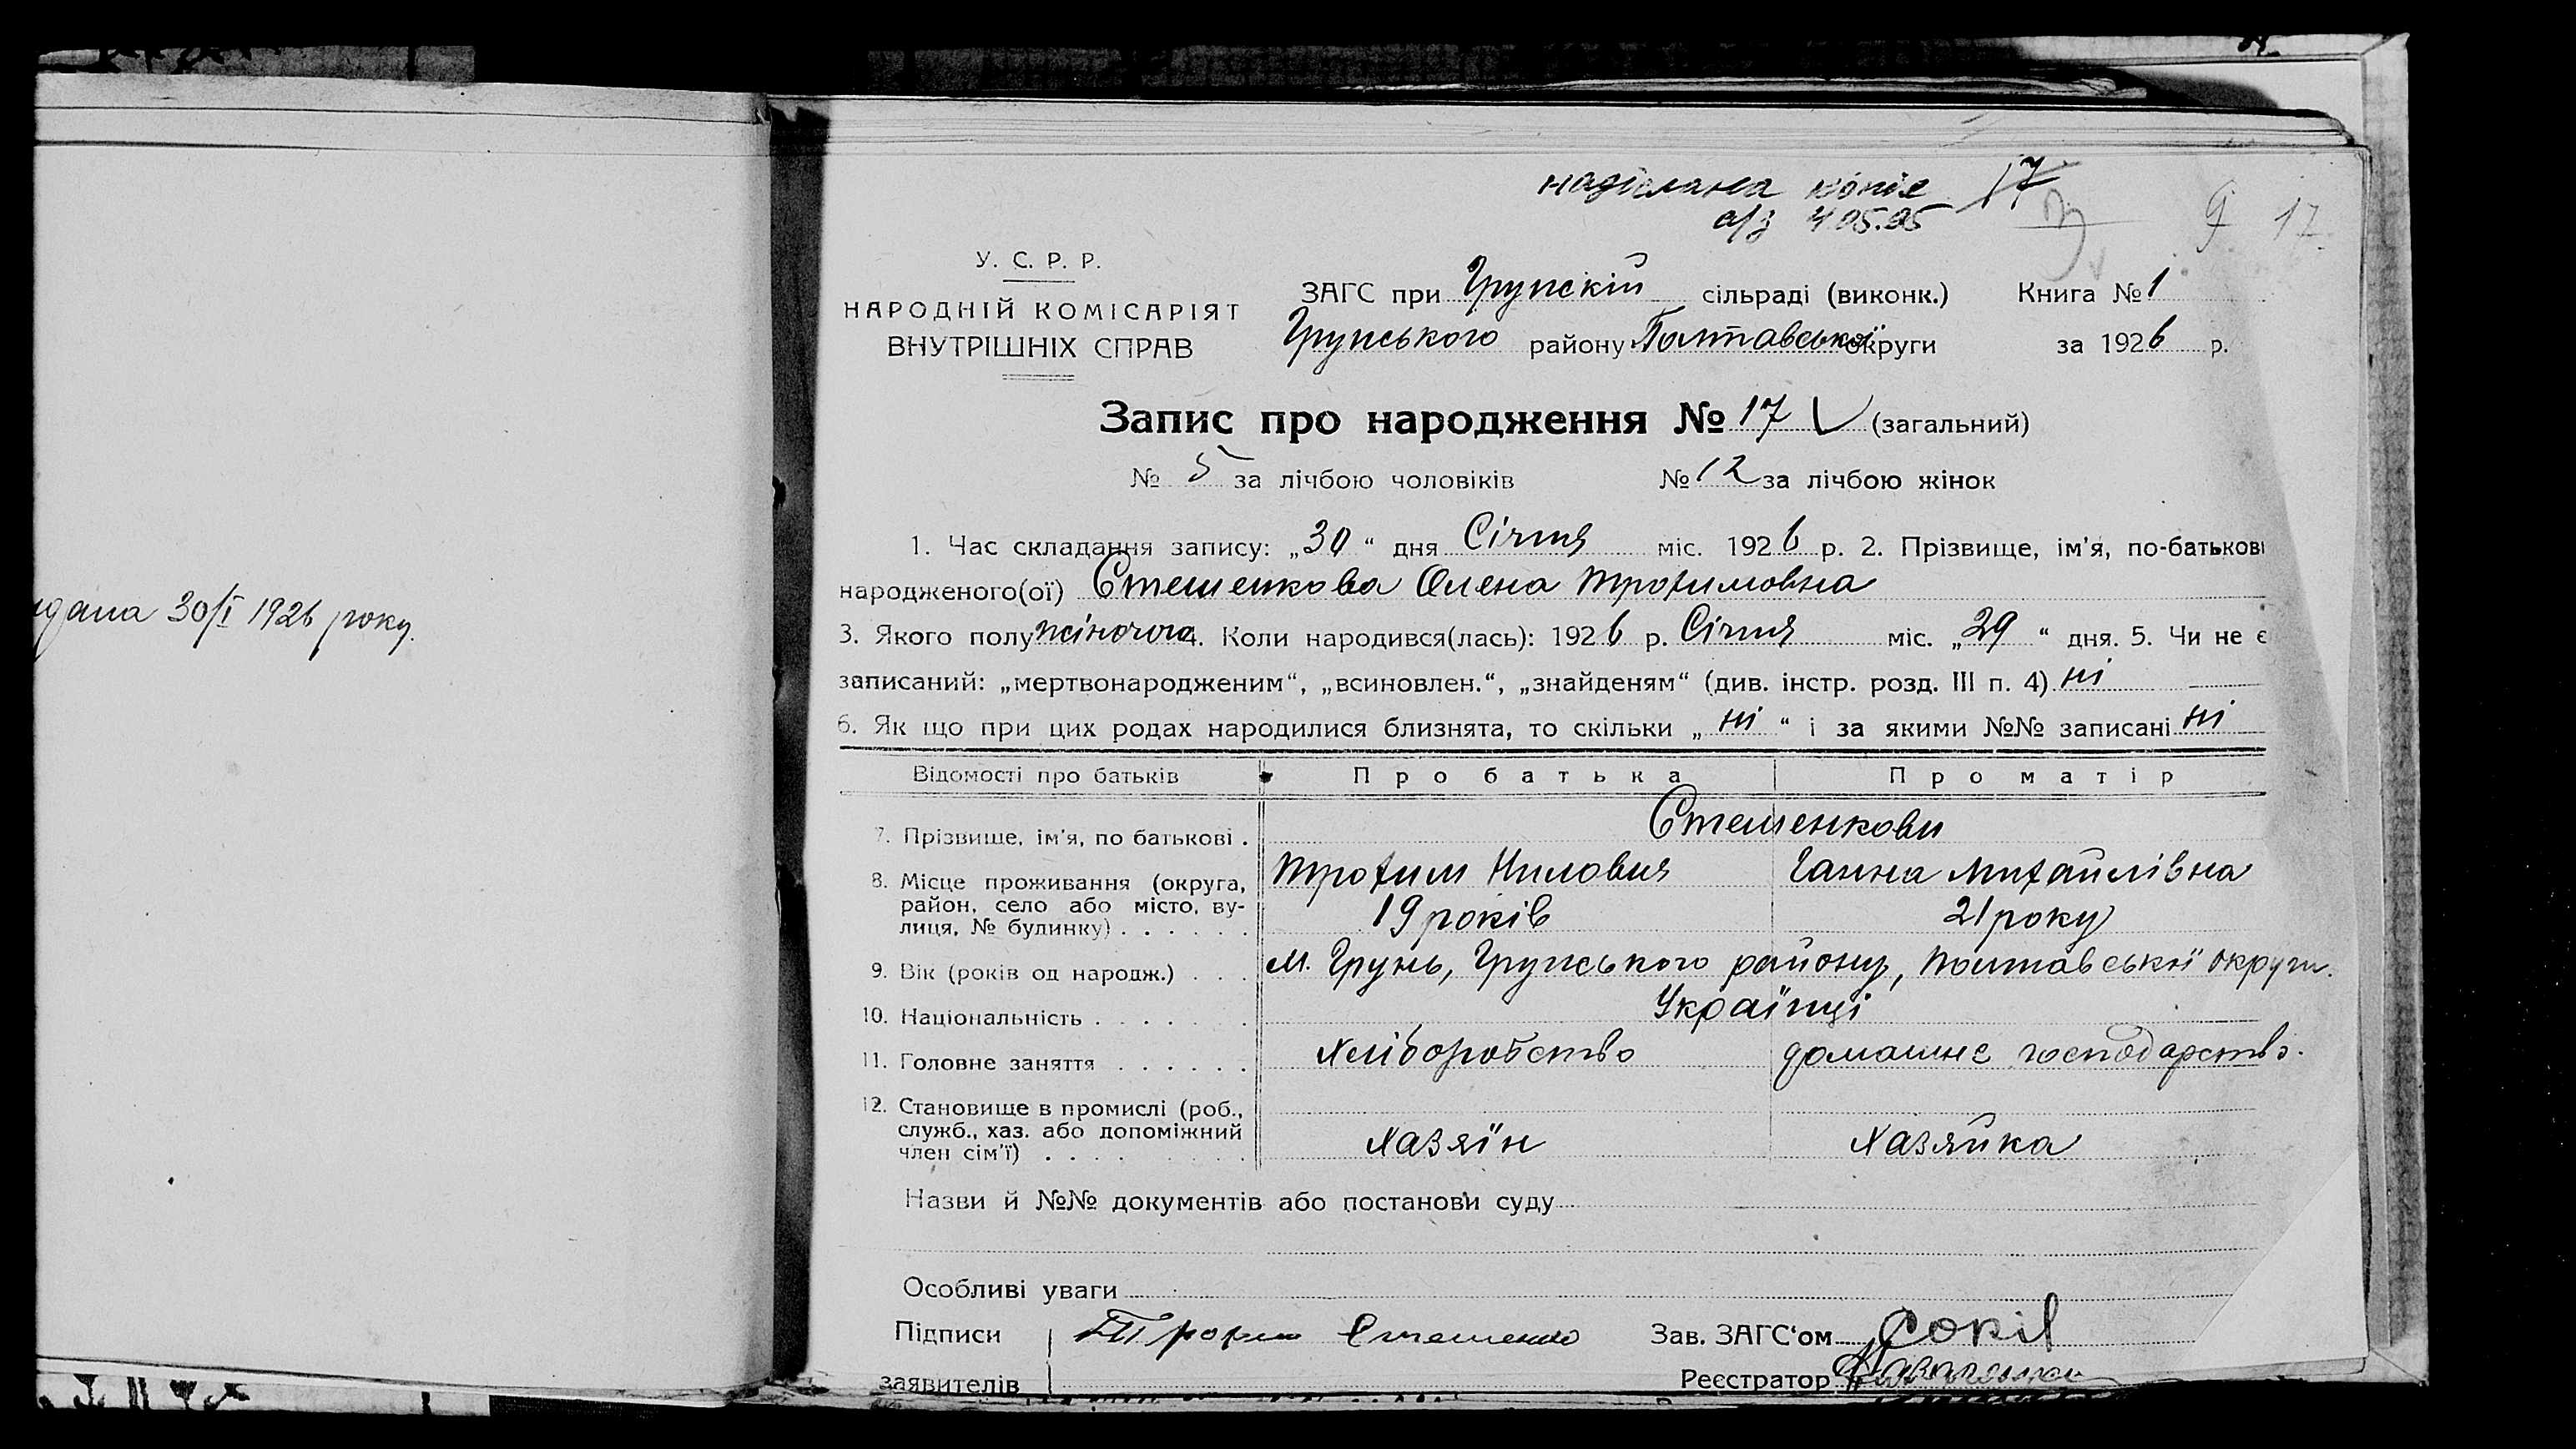 надіслана копія 17
а/з 4 05.95
9 17
У. С. Р. Р.
НАРОДНІЙ КОМІСАРІЯТ
ВНУТРІШНІХ СПРАВ
ЗАГС при Грунській сільраді (виконк.) Книга № 1
Грунського району Полтавської округи за 1926 р.
Запис про народження № 17 (загальний)
№ 5 за лічбою чоловіків № 12 за лічбою жінок
1. Час складання запису: „30“ дня Січня міс. 1926 р. 2. Прізвище, ім'я, по-батькові
народженого(ої) Стешенкова Олена Трохимовна
3. Якого полу жіночого 4. Коли народився(лась): 1926 р. Січня міс. „29“ дня. 5. Чи не є
записаний: „мертвонародженим“, „всиновлен.“, „знайденям“ (див. інстр. розд. III п. 4) ні
6. Як що при цих родах народилися близнята, то скільки „ні“ і за якими №№ записані ні
Відомості про батьків Про батька Про матір
7. Прізвище, ім'я, по батькові . Стешенкови
8. Місце проживання (округа, Трохим Нилович Ганна Михайлівна
район, село або місто, ву-
лиця, № будинку) . . . . . . 19 років 21 року
9. Вік (років од народж.) . . . м. Грунь, Грунського району, Полтавської округи.
10. Національність . . . . . . . Українці
11. Головне заняття . . . . . . Хліборобство домашнє господарство.
12. Становище в промислі (роб.,
служб., хаз. або допоміжний Хазяїн Хазяйка
член сім'ї) . . . . . . . . .
Назви й №№ документів або постанови суду
Особливі уваги
Підписи Трохим Стешенко Зав. ЗАГС'ом Сокіл
заявителів Реєстратор
дана 30/I 1926 року.